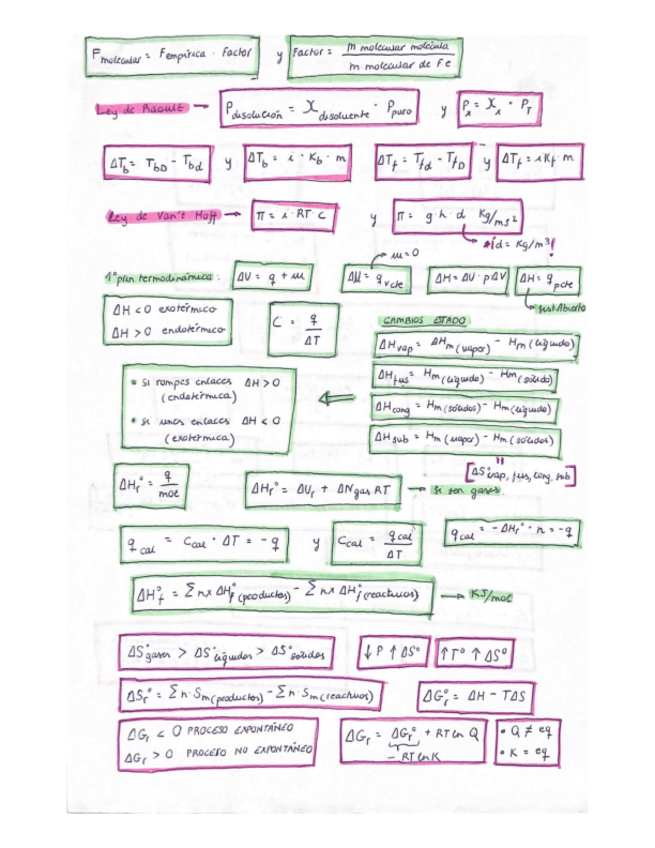 F molecular = Fempírica · Factor y Factor = m molecular molécula / m molecular de Fe
Ley de Raoult → P disolución = X disolvente · P puro y P_x = X_x · P_T
ΔT_b = T_bD - T_bd y ΔT_b = i · K_b · m ΔT_f = T_fd - T_fD y ΔT_f = i K_f · m
Ley de Van't Hoff → π = i · RT · C y π = g · h · d Kg/ms²
d = Kg/m³!
w = 0
1º prin termodinámica: ΔU = q + w ΔU = q_v cte ΔH = ΔU · pΔV ΔH = q_p cte
sist Abierto
ΔH < 0 exotérmico
ΔH > 0 endotérmico
C = q / ΔT
CAMBIOS ESTADO
ΔH vap = ΔHm (vapor) - Hm (líquido)
ΔH fus = Hm (líquido) - Hm (sólido)
ΔH cong = Hm (sólidos) - Hm (líquido)
ΔH sub = Hm (vapor) - Hm (sólidos)
[ΔS° vap, fus, cong, sub]
• si rompes enlaces ΔH > 0
(endotérmica)
• si unes enlaces ΔH < 0
(exotérmica)
ΔH_r° = q / mol ΔH_r° = ΔU_r + ΔN gas RT → si son gases.
q cal = C cal · ΔT = -q y C cal = q cal / ΔT q cal = -ΔH_r° · n = -q
ΔH_f° = Σ n x ΔH_f° (productos) - Σ n x ΔH_f° (reactivos) → KJ/mol
ΔS° gases > ΔS° líquidos > ΔS° sólidos ↓P ↑ΔS° ↑T° ↑ΔS°
ΔS_r° = Σ n · S_m (productos) - Σ n · S_m (reactivos) ΔG_r° = ΔH - TΔS
ΔG_r < 0 PROCESO EXPONTÁNEO
ΔG_r > 0 PROCESO NO EXPONTÁNEO
ΔG_r = ΔG_r° + RT ln Q
- RT ln K
• Q ≠ eq
• K = eq